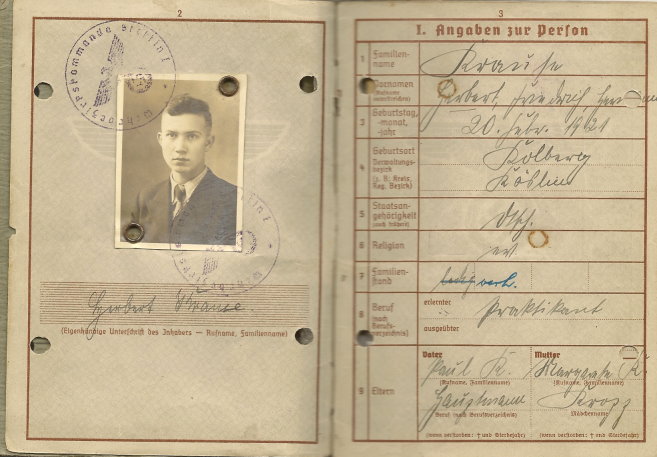 2
Wehrbezirkskommando Stettin I
Herbert Krause
(Eigenhändige Unterschrift des Inhabers — Rufname, Familienname)
3
I. Angaben zur Person
1 Familien-
name
Krause
Vornamen
(Rufname
unterstreichen)
Herbert Friedrich
3 Geburtstag,
-monat,
-jahr
20. Febr. 1921
4 Geburtsort
Verwaltungs-
bezirk
(z. B. Kreis,
Reg. Bezirk)
Kolberg
Köslin
5 Staatsan-
gehörigkeit
(auch frühere)
Dtsch.
6 Religion
ev.
7 Familien-
stand
ledig verh.
8 Beruf
(nach
Berufs-
verzeichnis)
erlernter
Praktikant
ausgeübter
9 Eltern
Vater
Mutter
Paul K.
Margarete K.
(Rufname, Familienname)
(Rufname, Familienname)
Hauptmann
Beruf (nach Berufsverzeichnis)
Mädchenname
(wenn verstorben: † und Sterbejahr)
(wenn verstorben: † und Sterbejahr)